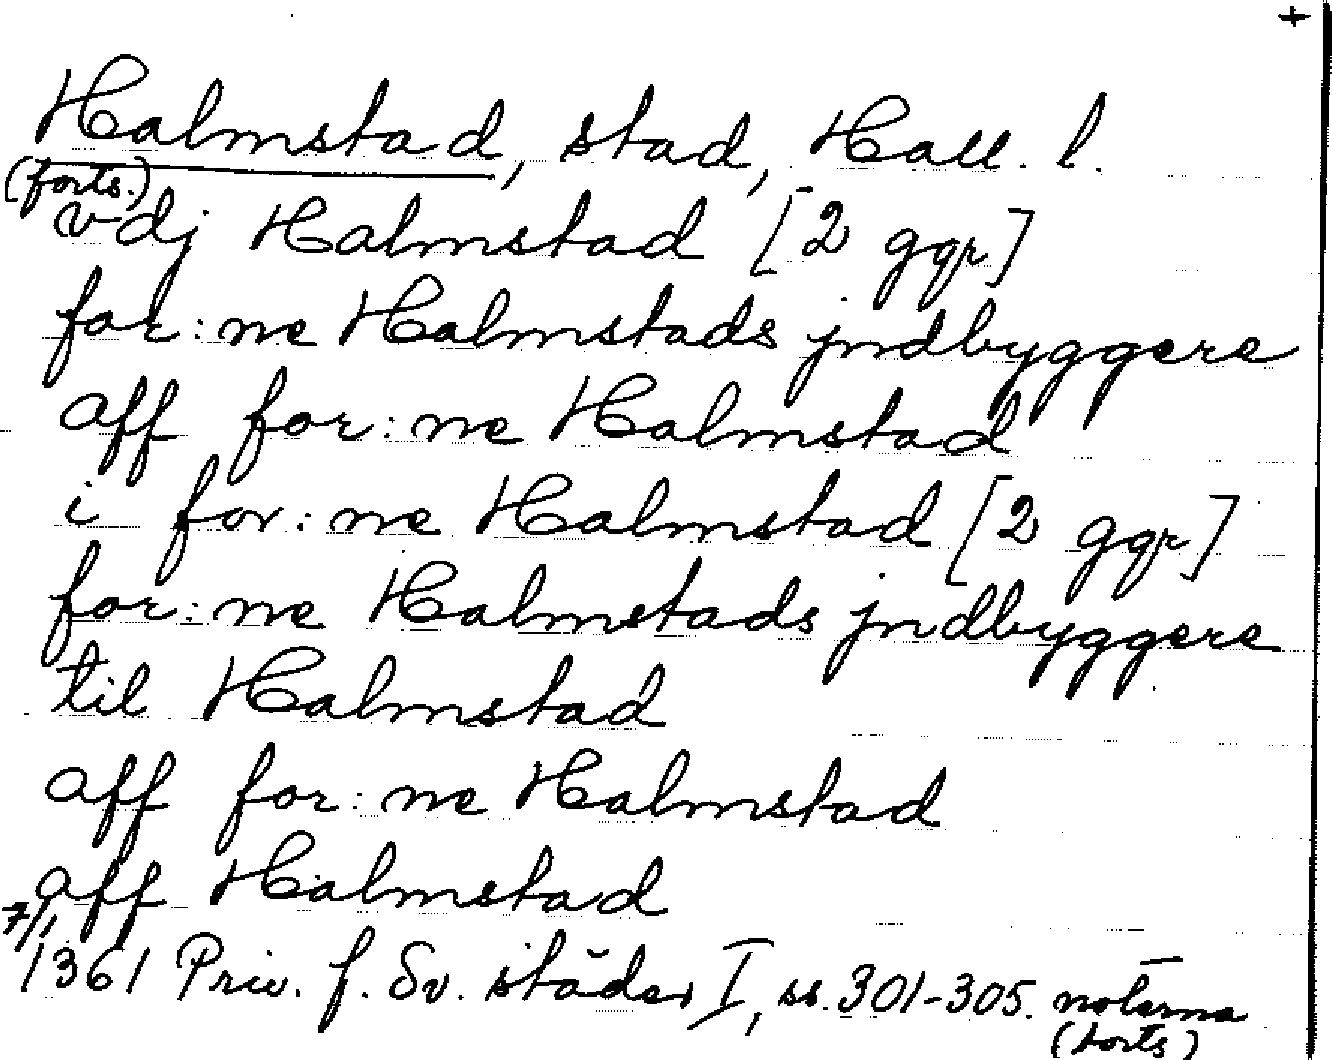 +
Halmstad, stad, Hall. l.
(forts.)
vdj Halmstad [2 ggr]
for:ne Halmstads jndbyggere
aff for:ne Halmstad
i for:ne Halmstad [2 ggr]
for:ne Halmstads jndbyggere
til Halmstad
aff for:ne Halmstad
aff Halmstad
7/1 1361 Priv. f. Sv. städer I, ss. 301-305. noterna
(forts)